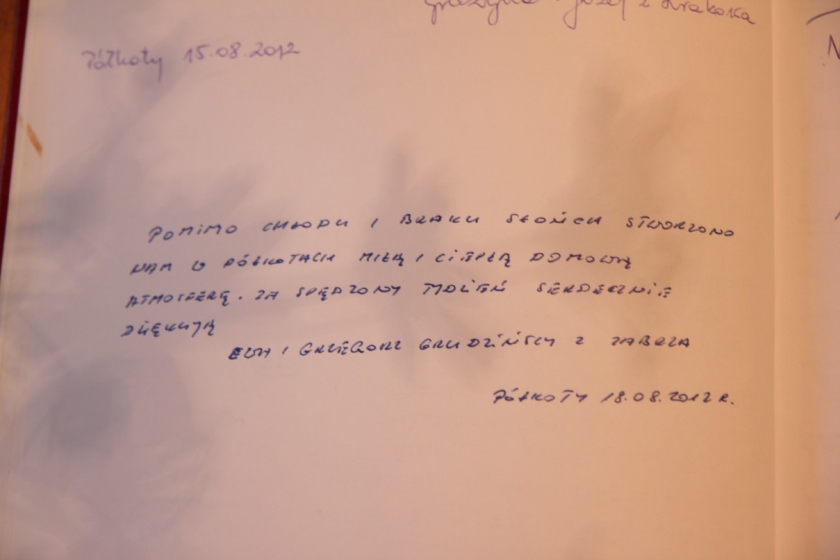 Grażyna i Józef z Krakowa
Półkoty 15.08.2012
POMIMO CHŁODU I BRAKU SŁOŃCA STWORZONO
NAM W PÓŁKOTACH MIŁĄ I CIEPŁĄ DOMOWĄ
ATMOSFERĘ. ZA SPĘDZONY TYDZIEŃ SERDECZNIE
DZIĘKUJĄ
EWA I GRZEGORZ GRUDZIŃSCY Z ZABRZA
PÓŁKOTY 18.08.2012 R.